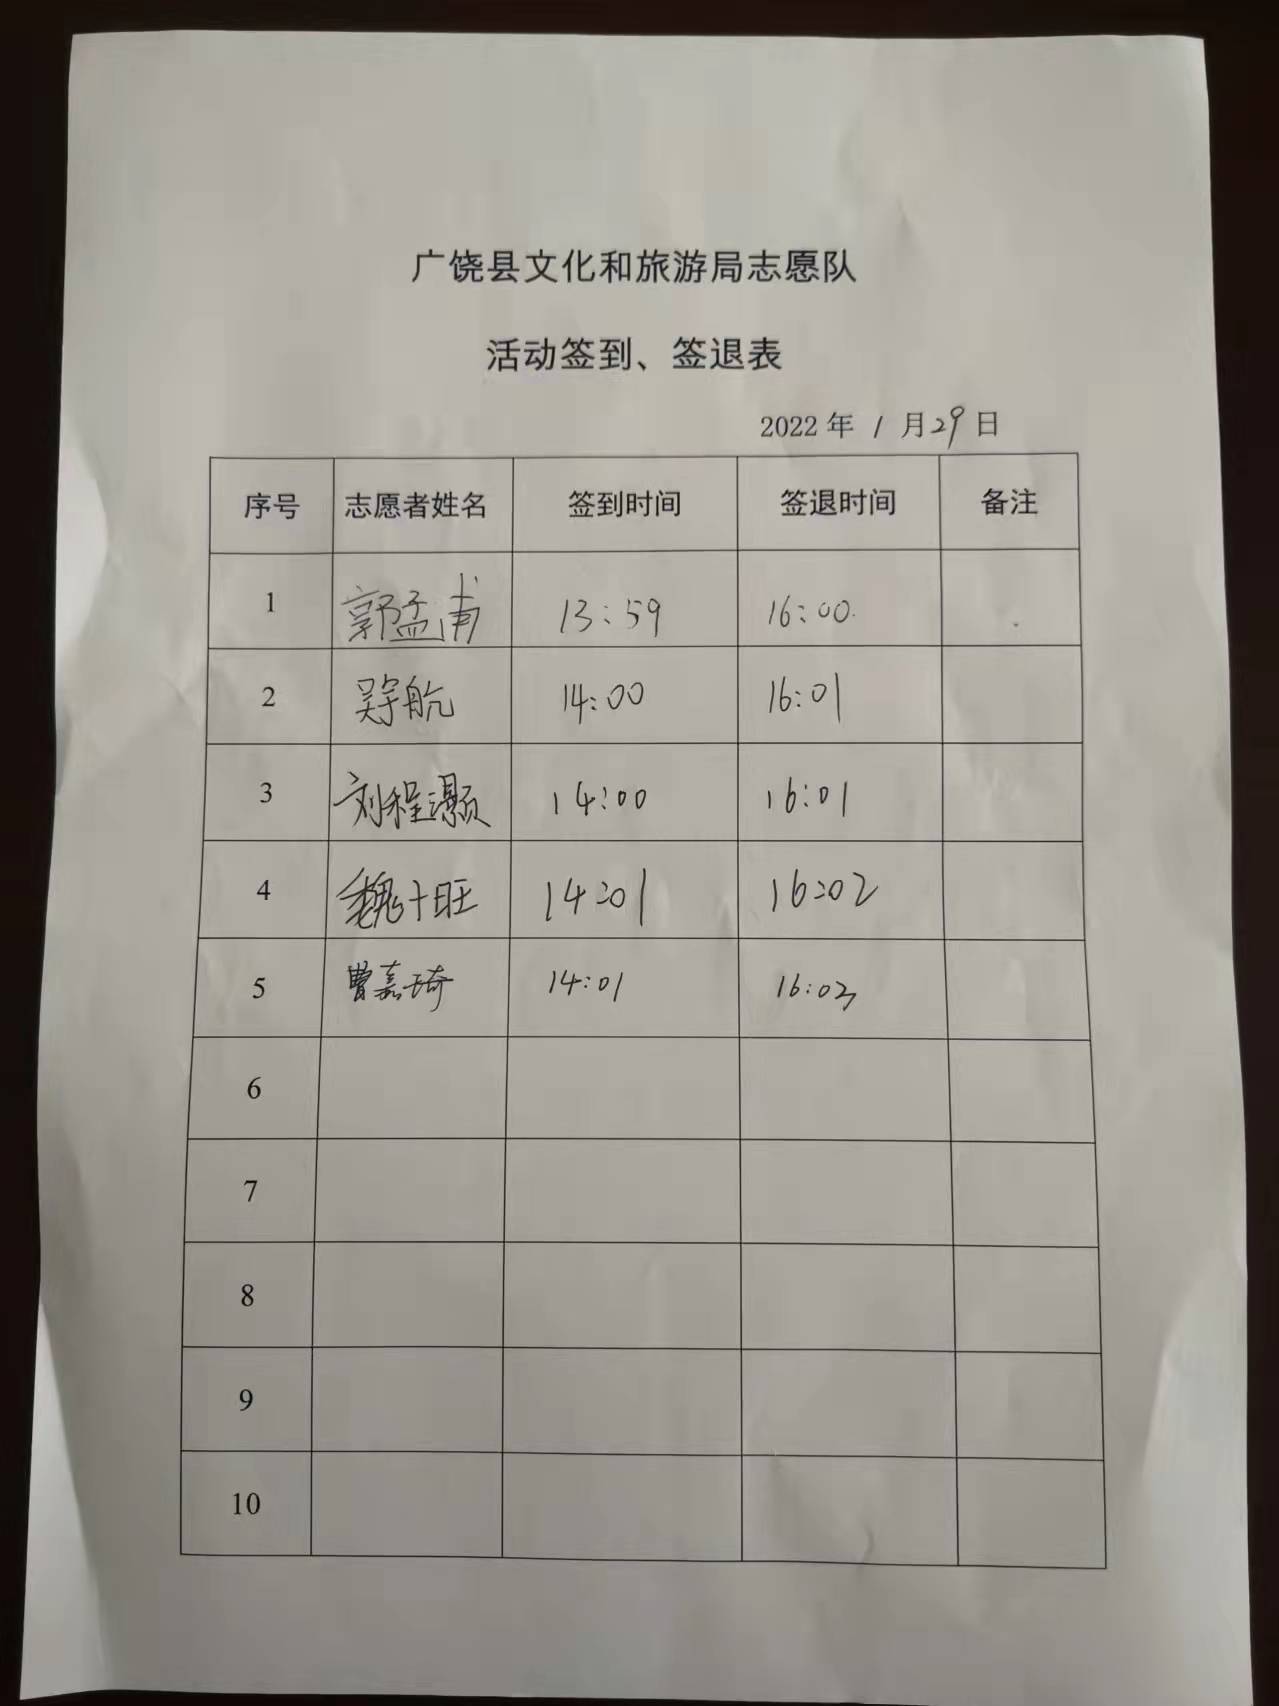 广饶县文化和旅游局志愿队
活动签到、签退表
2022 年 1 月 29 日
序号 志愿者姓名 签到时间 签退时间 备注
1 郭孟甫 13:59 16:00
2 航 14:00 16:01
3 刘程灏 14:00 16:01
4 魏十旺 14:01 16:02
5 曹嘉琦 14:01 16:03
6
7
8
9
10